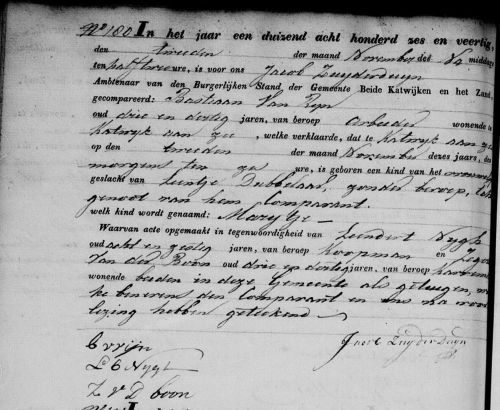 No 180 In het jaar een duizend acht honderd zes en veertig,
den tweeden der maand November des Na middags
ten half twee ure, is voor ons Jacob Zuyderduyn
Ambtenaar van den Burgerlijken Stand, der Gemeente Beide Katwijken en het Zand,
gecompareerd: Bastiaan Van Ryn
oud drie en dertig jaren, van beroep Arbeider wonende te
Katwyk aan Zee, welke verklaarde, dat te Katwyk aan Zee
op den tweeden der maand November dezes jaars, des
morgens ten zes ure, is geboren een kind van het vrouwelyk
geslacht van Leentje Dubbelaar, zonder beroep,
genoot van hem Comparant.
welk kind wordt genaamd: Marytje
Waarvan acte opgemaakt in tegenwoordigheid van Leendert Nygh
oud acht en zestig jaren, van beroep Koopman en
Van der Boon oud drie en dertig jaren, van beroep
wonende beiden in deze Gemeente als getuigen,
ke beneven den Comparant en ons na voor
lezing hebben getekend
B v rijn
L C Nygh
Z v D boon
Jacob Zuyderduyn